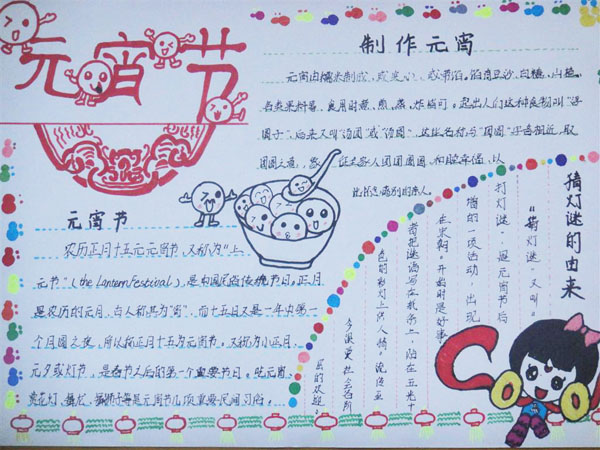 元宵节
制作元宵
元宵由糯米制成,或实心,或带馅。馅有豆沙、白糖、山楂、
各类果料等,食用时煮、煎、蒸、炸皆可。起初人们这种食物叫“浮
圆子”,后来又叫“汤团”或“汤圆”,这些名称与“团圆”字音相近,取
团圆之意,象征全家人团团圆圆,和睦幸福,人
此怀念离别的亲人
元宵节
农历正月十五元元宵节,又称为“上
元节”(the Lantern Festival),是中国民俗传统节日。正月
是农历的元月,古人称其为“宵”,而十五日又是一年中第一
个月圆之夜,所以称正月十五为元宵节。又称为小正月、
元夕或灯节,是春节之后的第一个重要节日。吃元宵、
赏花灯、舞龙、舞狮子等是元宵节几项重要民间习俗。
猜灯谜的由来
“猜灯谜”又叫“
打灯谜”是元宵节后
增的一项活动,出现
在宋朝。开始时是好事
者把谜语写在纸条上,贴在五光十
色的彩灯上供人猜。
今深受社会各阶
层的欢迎。